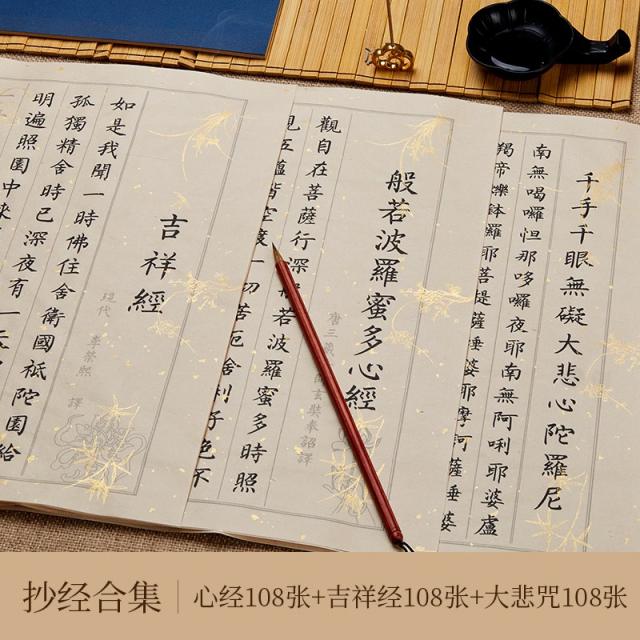 千手千眼無礙大悲心陀羅尼
南無喝囉怛那哆囉夜耶南無阿唎耶婆盧
羯帝爍鉢羅耶菩提薩埵婆耶摩訶薩埵婆
般若波羅蜜多心經
唐三藏 玄奘奉詔譯
觀自在菩薩行深般若波羅蜜多時照
見五蘊皆空度一切苦厄舍利子色不
吉祥經
現代 李榮熙 譯
如是我聞一時佛住舍衛國祇陀園給
孤獨精舍時已深夜有一天
明遍照園中來
抄经合集
心经108张+吉祥经108张+大悲咒108张